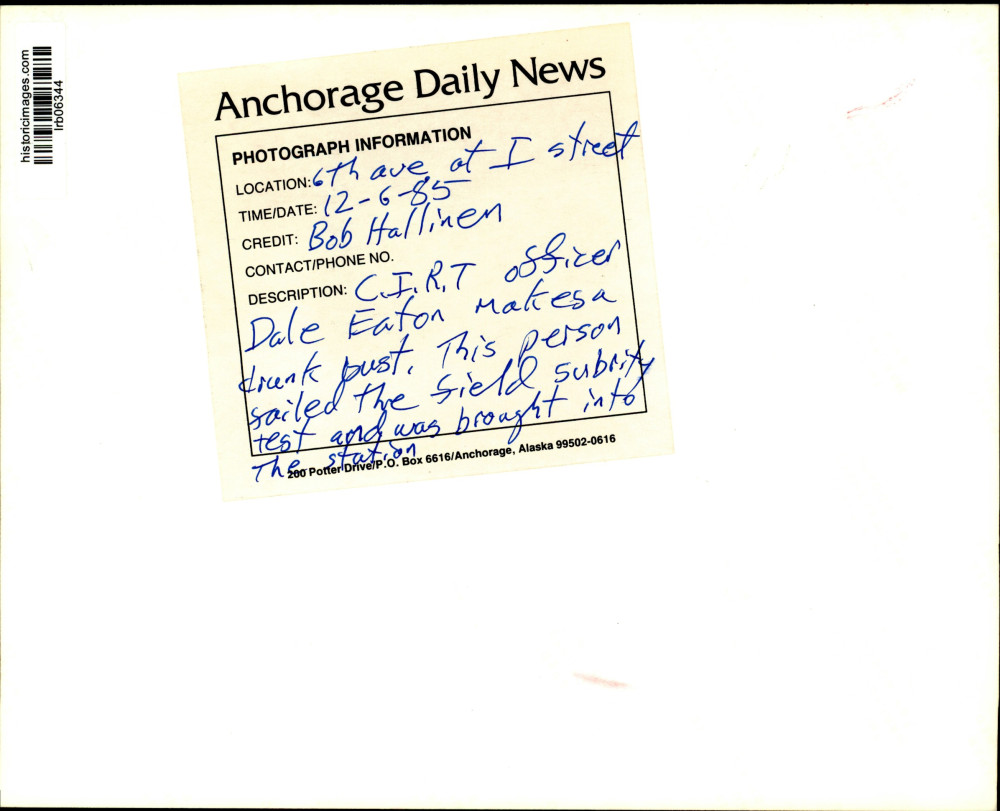 historicimages.com
lrb06344
Anchorage Daily News
PHOTOGRAPH INFORMATION
LOCATION: 6th ave. at I street
TIME/DATE: 12-6-85
CREDIT: Bob Hallinen
CONTACT/PHONE NO.
DESCRIPTION: C.I.R.T officer
Dale Eaton makes a
drunk bust. This person
failed the field subrity
test and was brought into
the station
200 Potter Drive/P.O. Box 6616/Anchorage, Alaska 99502-0616